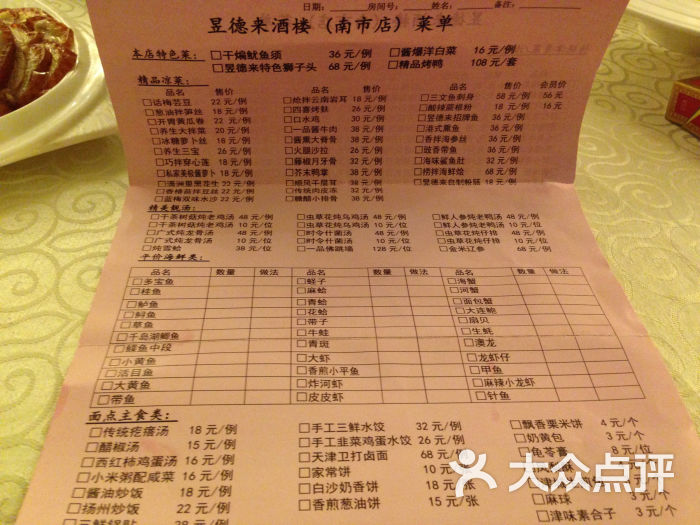 日期: 房间号: 姓名: 备注:
昱德来酒楼（南市店）菜单
本店特色菜： □干煸鱿鱼须 36 元/例 □酱爆洋白菜 16 元/例
□昱德来特色狮子头 68 元/例 □精品烤鸭 108 元/套
精品凉菜：
品名 售价 品名 售价 品名 售价 会员价
□话梅芸豆 22 元/例 □烩拌云南岩耳 18 元/例 □三文鱼刺身 58 元/例 56 元
□葱油拌笋丝 18 元/例 □四喜烤麸 26 元/例 □酸辣蕨根粉 18 元/例 16 元
□开胃黄瓜卷 22 元/例 □口水鸡 30 元/例 □昱德来招牌鱼 36 元/例
□养生大拌菜 20 元/例 □一品酱牛肉 38 元/例 □港式熏鱼 36 元/例
□冰糖萝卜丝 18 元/例 □酱熏大脊骨 38 元/例 □香拌海参丝 36 元/例
□养生三宝 26 元/例 □火腿沙拉 26 元/例 □豉香带鱼 36 元/例
□巧拌穿心莲 18 元/例 □藤椒月牙骨 32 元/例 □海味鲨鱼肚 32 元/例
□私家美极酱萝卜 18 元/例 □芥末鸭掌 38 元/例 □捞拌海鲜烩 68 元/例
□满洲里黑花生 22 元/例 □顺风千层耳 38 元/例 □昱德来自制粉肠 18 元/例
□香椿苗拌豆丝 22 元/例 □传统肉皮冻 32 元/例
□蓝梅双味水沙 22 元/例 □糖醋小排骨 38 元/例
精美靓汤：
□干茶树菇炖老鸡汤 48 元/例 □虫草花炖乌鸡汤 48 元/例 □鲜人参炖老鸭汤 48 元/例
□干茶树菇炖老鸡汤 10 元/位 □虫草花炖乌鸡汤 10 元/位 □鲜人参炖老鸭汤 10 元/位
□广式炖龙骨汤 48 元/例 □时令什菌汤 48 元/例 □虫草花炖仔排 48 元/例
□广式炖龙骨汤 10 元/位 □时令什菌汤 10 元/位 □虫草花炖仔排 10 元/位
□炖雪蛤 38 元/位 □一品佛跳墙 128 元/位 □金米辽参 68 元/例
平价海鲜类：
品名 数量 做法 品名 数量 做法 品名 数量 做法
□多宝鱼 □蛏子 □海蟹
□桂鱼 □麻蛤 □河蟹
□鲈鱼 □青蛤 □面包蟹
□鲟鱼 □花蛤 □大连鲍
□草鱼 □带子 □扇贝
□千岛湖鲫鱼 □牛蛙 □生蚝
□鲽鱼中段 □青斑 □澳龙
□小黄鱼 □大虾 □龙虾仔
□活目鱼 □香煎小平鱼 □甲鱼
□大黄鱼 □炸河虾 □麻辣小龙虾
□带鱼 □皮皮虾 □针鱼
面点主食类：
□传统疙瘩汤 18 元/例 □手工三鲜水饺 32 元/例 □飘香栗米饼 4 元/个
□醋椒汤 15 元/例 □手工韭菜鸡蛋水饺 26 元/例 □奶黄包 3 元/个
□西红柿鸡蛋汤 16 元/例 □天津卫打卤面 68 元/例 □龟苓膏 6 元/位
□小米粥配咸菜 16 元/例 □家常饼 10 元
□酱油炒饭 18 元/例 □白沙奶香饼 18 元
□扬州炒饭 22 元/例 □香煎葱油饼 15 元/张 □麻球 3 元/个
□三鲜锅贴 28 元/例 □津味素合子 3 元/个
大众点评